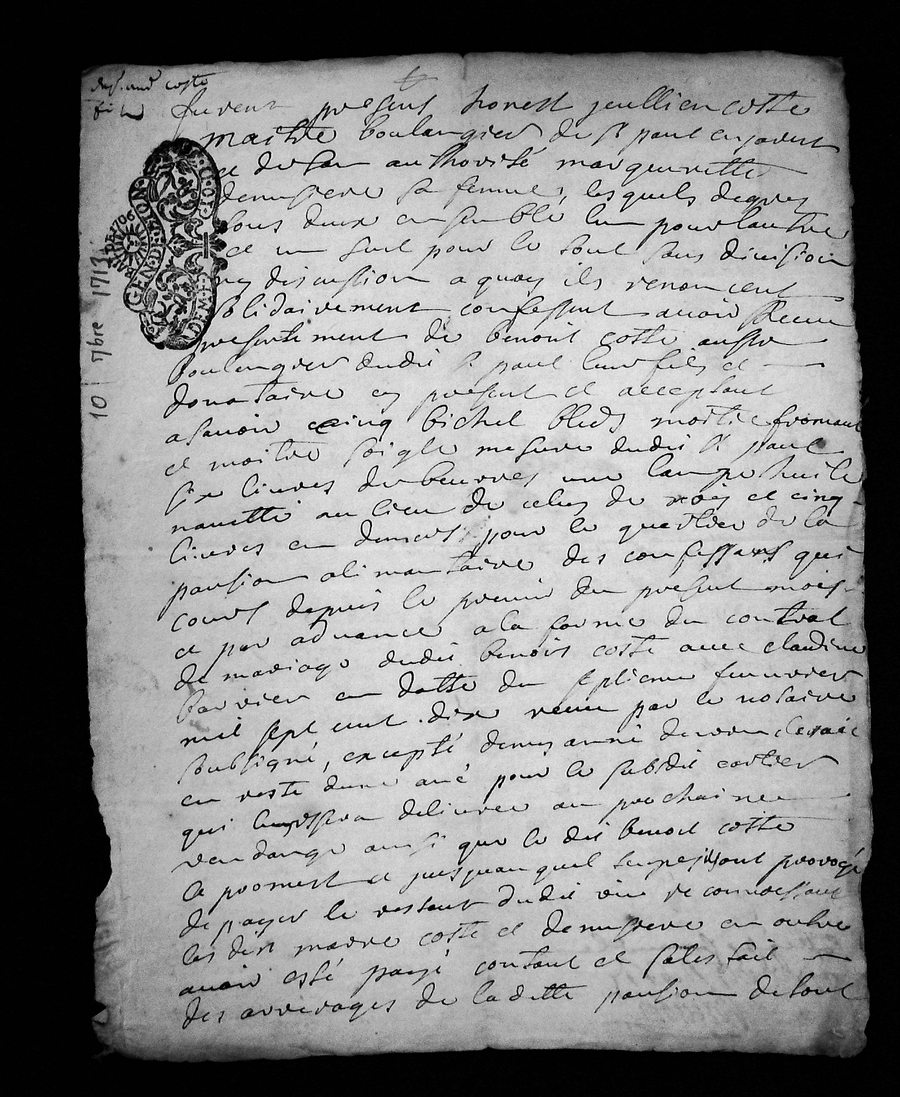 coste
fils
furent present honest jeullien coste
maitre boulangier de St paul en jarent
et de son authorité marguerette
sa femme, lesquels de grez
tous deux ensemble lun pour lautre
et un seul pour le tout sans division
ny discustion a quoy ils renoncent
solidairement confessent avoir Receu
presentement de benoit coste aussy
boulangier dudit St paul leur fils et
donataire cy present et acceptant
asavoir cinq bichet bleds moitie fromant
et moitie soigle mesure dudit St paul
six livres de beurres une lampe huile
navette au lieu de celuy de noix et cinq
livres en deniers pour le quartier de la
pansion alimantaire des confessants qui
cours depuis le premier du present mois
et par advance a la forme du contrat
de mariage dudit benoit coste avec claudine
barrier en datte du septieme fevrier
mil sept cent dix receu par le notaire
soubsigné, excepté demy anné de vin clerait
en reste dune ané pour le susdit cartier
qui delivree au prochaine
vandange ainsi que le dit benoit coste
le promest et jusquau quel
de payer le restent dudit vin reconnoissant
les dits marre coste et en outre
avoir esté payé contant et satesfait
des arrerages de la ditte pansion de tout
10 7bre 1713
GEN.D.LION